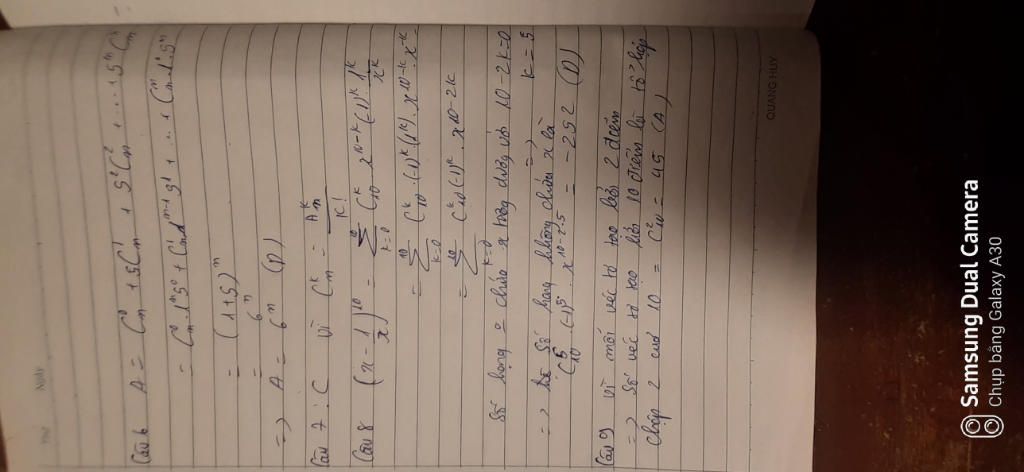 Thứ Ngày
Câu 6 A = C⁰ₙ + 5C¹ₙ + 5²C²ₙ + ... + 5ⁿCⁿₙ
= C⁰ₙ.1ⁿ5⁰ + C¹ₙ1ⁿ⁻¹5¹ + ... + Cⁿₙ.1⁰.5ⁿ
= (1+5)ⁿ
= 6ⁿ
=> A = 6ⁿ (D)
Câu 7: C vì Cᵏₙ = Aᵏₙ / K!
Câu 8 (x - 1/x)¹⁰ = ∑¹⁰ₖ₌₀ Cᵏ₁₀ x¹⁰⁻ᵏ (-1)ᵏ 1ᵏ/xᵏ
= ∑¹⁰ₖ₌₀ Cᵏ₁₀.(-1)ᵏ(1ᵏ).x¹⁰⁻ᵏ.x⁻ᵏ =
= ∑¹⁰ₖ₌₀ Cᵏ₁₀(-1)ᵏ.x¹⁰⁻²ᵏ
Số hạng chứa x tương đương với 10-2k=0
=> k = 5
=> Số hạng không chứa x là
C⁵₁₀ (-1)⁵.x¹⁰⁻²·⁵ = -252 (D)
Câu 9 Vì mỗi véc tơ tạo bởi 2 điểm
=> Số véc tơ tạo bởi 10 điểm là tổ hợp
chập 2 của 10 = C²₁₀ = 45 (A)
QUANG HUY
Samsung Dual Camera
Chụp bằng Galaxy A30